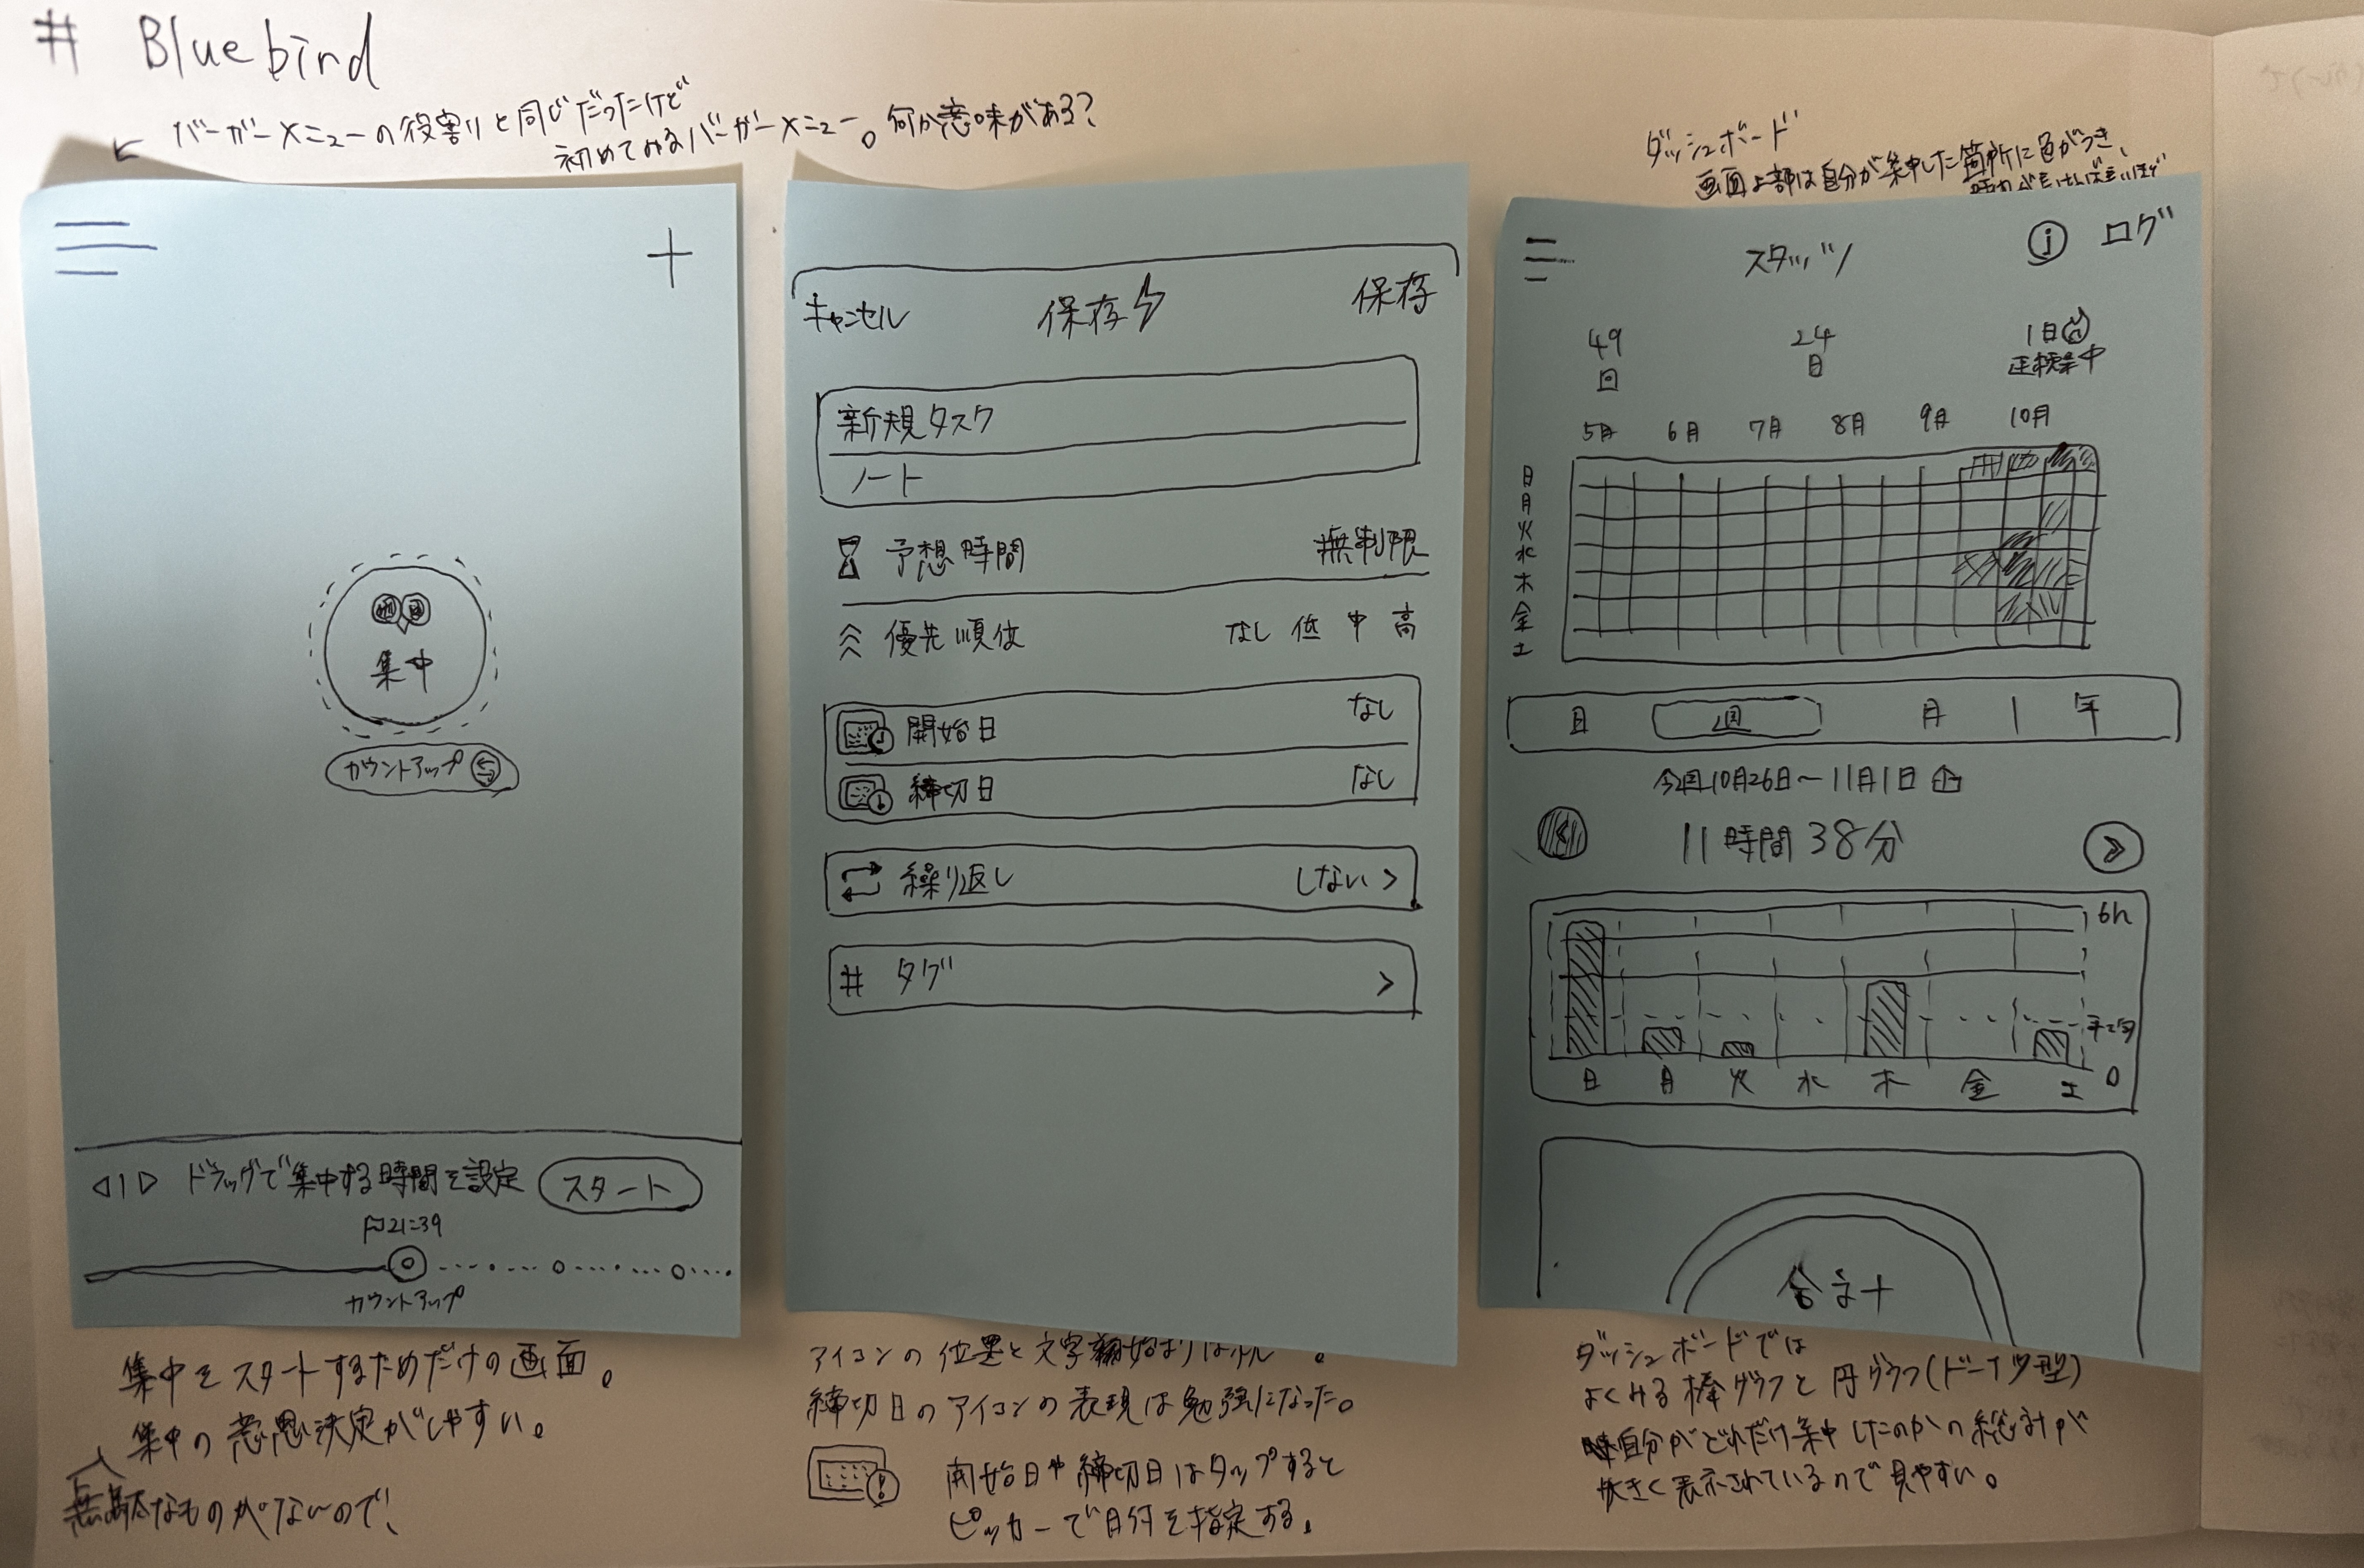 # Bluebird
← バーガーメニューの役割りと同じだったけど
初めてみるバーガーメニュー。何か意味がある?
+
集中
カウントアップ
ドラッグで集中する時間を設定 スタート
21:39
カウントアップ
集中をスタートするためだけの画面。
集中の意思決定がしやすい。
無駄なものがないので、
キャンセル 保存 保存
新規タスク
ノート
予想時間 無制限
優先順位 なし 低 中 高
開始日 なし
締切日 なし
繰り返し しない >
# タグ >
アイコンの位置と文字 始まりは
締切日のアイコンの表現は勉強になった。
開始日や締切日はタップすると
ピッカーで日付を指定する。
ダッシュボード
画面上部は自分が集中した箇所に色がつき、
スタッツ i ログ
49 24 1日
回 日 連続集中
5月 6月 7月 8月 9月 10月
日
月
火
水
木
金
土
日 週 月 | 年
今週10月26日〜11月1日
11時間38分
6h
平均
日 月 火 水 木 金 土 0
合計
ダッシュボードでは
よくみる棒グラフと円グラフ(ドーナツ型)
自分がどれだけ集中したのかの総計が
大きく表示されているので見やすい。